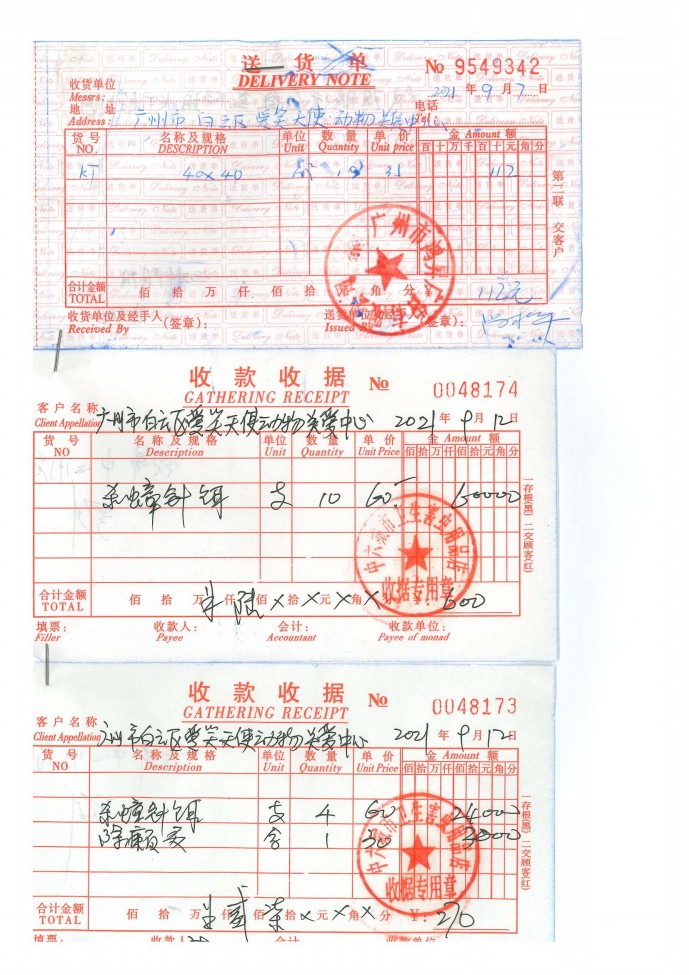 送货单
DELIVERY NOTE
No 9549342
收货单位
Messrs:
2021年9月7日
地 地
Address:
广州市白云区爱笑天使动物关爱中心
电话
Tel:
货号 名称及规格 单位 数量 单价 金 Amount 额
NO. DESCRIPTION Unit Quantity Unit price 百十万千百十元角分
KT 40×40 35 112
第二联 交客户
合计金额
TOTAL
佰 拾 万 仟 佰 拾 元 角 分 112元
收货单位及经手人(签章):
Received By
送货单位及经手人(签章):
Issued By
收款收据
GATHERING RECEIPT
No 0048174
客户名称
Client Appellation
广州市白云区爱笑天使动物关爱中心 2021年9月12日
货号 名称及规格 单位 数量 单价 金 Amount 额
NO Description Unit Quantity Unit Price 佰拾万仟佰拾元角分
杀蟑针饵 支 10 60.- 60000
一存根(黑) 二交顾客(红)
中六顺市卫生害虫用品店
收据专用章
合计金额
TOTAL
佰 拾 万 仟 陆 佰 × 拾 × 元 × 角 × 分 ¥: 600
填票: 收款人: 会计: 收款单位:
Filler Payee Accountant Payee of monad
收款收据
GATHERING RECEIPT
No 0048173
客户名称
Client Appellation
广州市白云区爱笑天使动物关爱中心 2021年9月12日
货号 名称及规格 单位 数量 单价 金 Amount 额
NO Description Unit Quantity Unit Price 佰拾万仟佰拾元角分
杀蟑针饵 支 4 60 24000
盒 1 30 3000
一存根(黑) 二交顾客(红)
收据专用章
合计金额
TOTAL
佰 拾 万 仟 贰 佰 柒 拾 × 元 × 角 × 分 ¥: 270
填票: 收款人 会计 收款单位